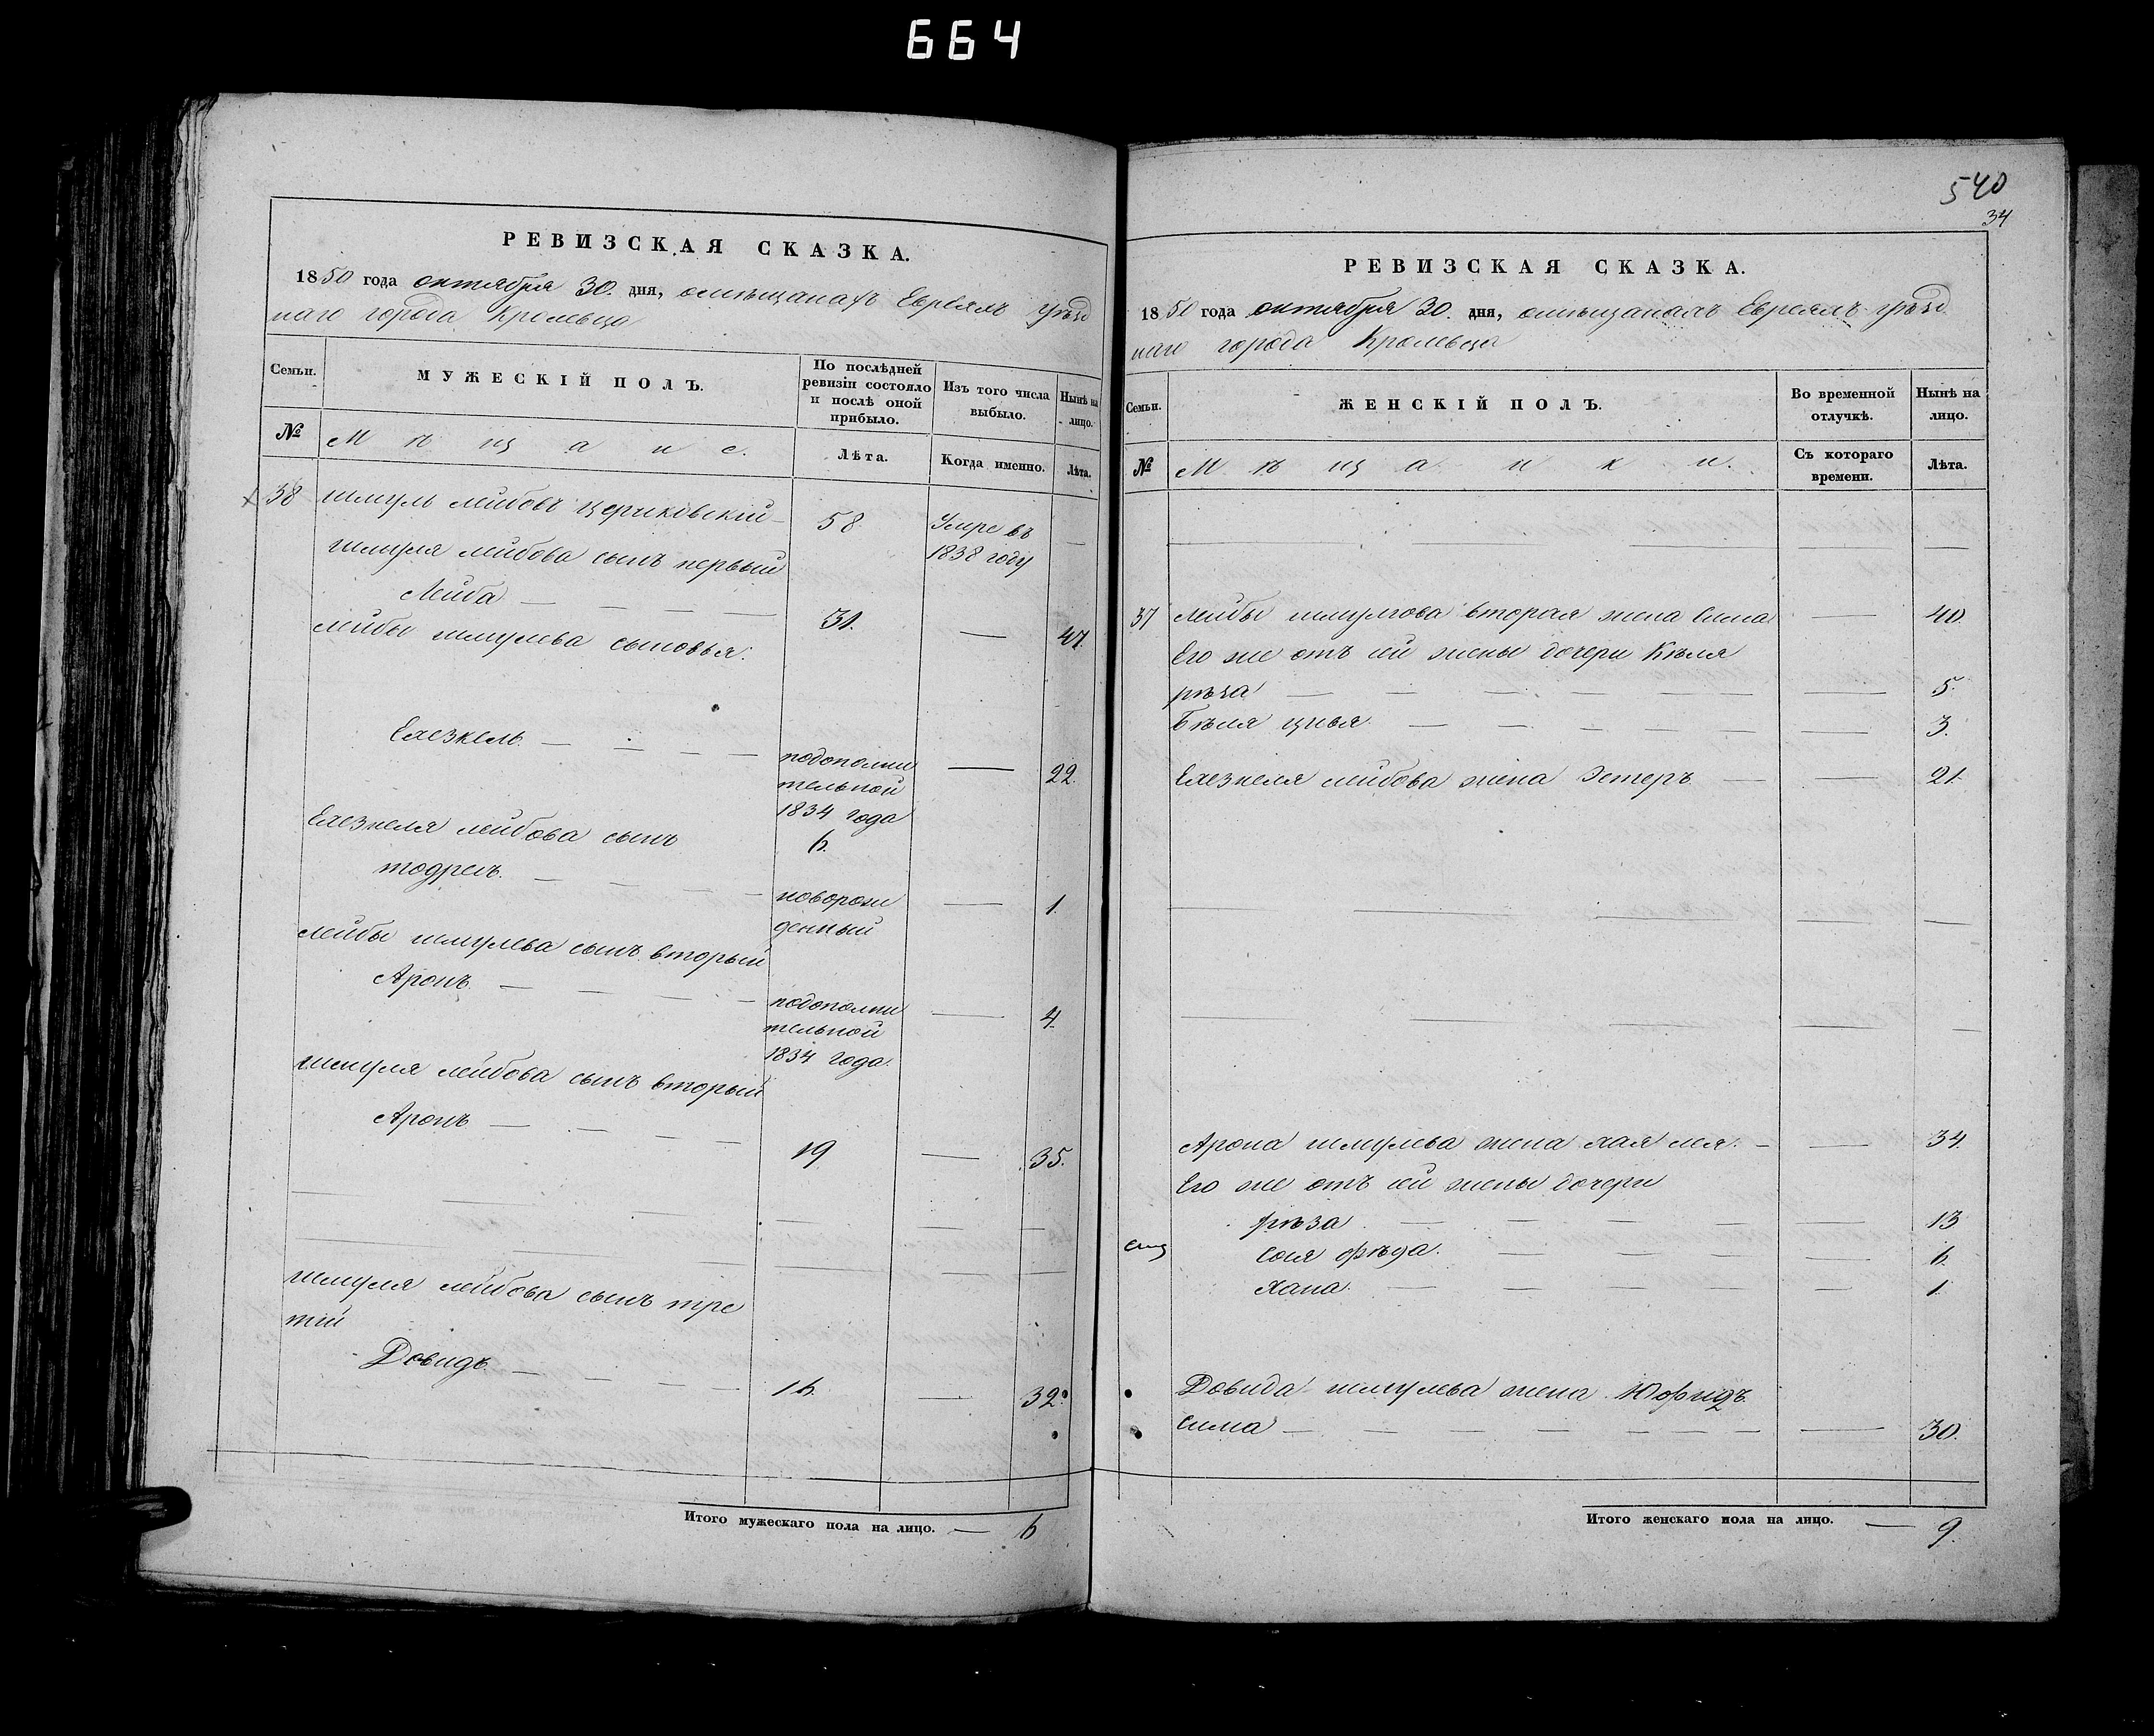 664
РЕВИЗСКАЯ СКАЗКА.
1850 года октября 30. дня, омѣщанахъ Евреяхъ уѣзд
наго города Кролевца
Семьи.
МУЖЕСКІЙ ПОЛЪ.
По послѣдней
ревизіи состояло
и послѣ оной
прибыло.
Изъ того числа
выбыло.
Нынѣ на
лицо.
№
Мѣщане.
Лѣта.
Когда именно.
Лѣта.
38 шмуль лейбовъ Цериковскій 58 Умре въ
1838 году
шмуля лейбова сынъ первый
Лейба 31. 47.
лейбы шмулева сыновья:
Ехезкель подополни 22.
тельной
1834 года
6.
Ехезкеля лейбова сынъ
тодресъ. новорож 1.
денный
лейбы шмулева сынъ вторый
Аронъ подополни 4.
тельной
1834 года.
шмуля лейбова сынъ вторый
Аронъ 19 35.
шмуля лейбова сынъ тре
тій
Довидъ 16. 32.
Итого мужескаго пола на лицо. 6
540
34
РЕВИЗСКАЯ СКАЗКА.
1850 года октября 30. дня, омѣщанахъ Евреяхъ уѣзд
наго города Кролевца
Семьи.
ЖЕНСКІЙ ПОЛЪ.
Во временной
отлучкѣ.
Нынѣ на
лицо.
№
Мѣщанки.
Съ котораго
времени.
Лѣта.
37 Лейбы шмулгова вторая жена Сима 40.
Его же отъ ей жены дочери Кѣля
рѣза 5.
Бѣля цивя 3.
Ехезкеля лейбова жена Эстеръ 21.
Арона шмулева жена хая лея. 34.
Его же отъ ей жены дочери
рѣза 13
Сося фрѣда. 6.
хана. 1.
Довида шмулева жена Юфидъ
сима 30.
Итого женскаго пола на лицо. 9.